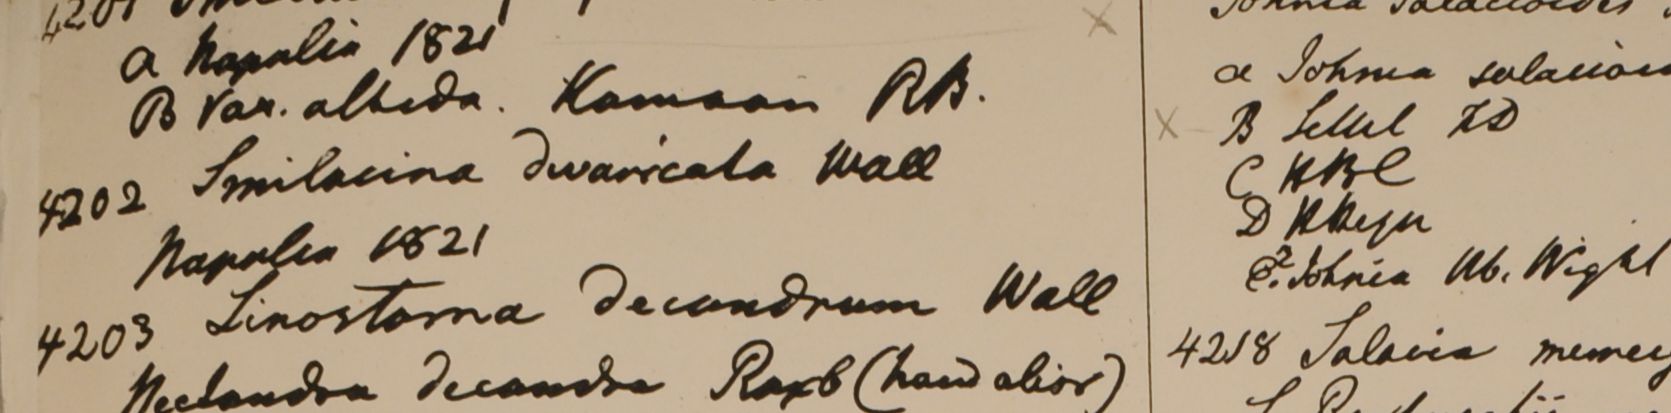 4201
a Napalia 1821
B Var. albida. Kamaon RB.
4202 Smilacina divaricata Wall
Napalia 1821
4203 Linostoma decandrum Wall
Nectandra decandra Roxb (haud alior)
Johnia salacioides
a Johnia salacioi
B Sillet FD
C HBC
D HHeyn
E? Johnia Hb. Wight
4218 Salacia memecy